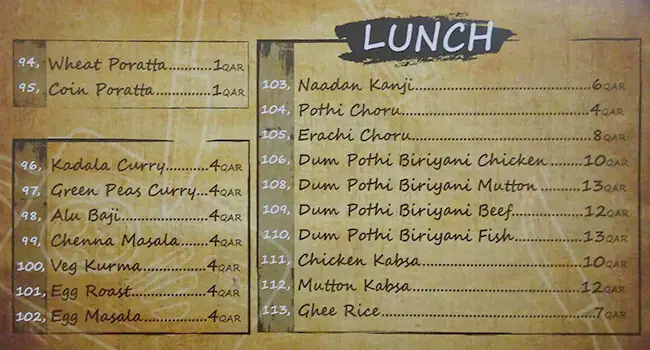 94, Wheat Poratta............1QAR
95, Coin Poratta..............1QAR
96, Kadala Curry...........4QAR
97, Green Peas Curry....4QAR
98, Alu Baji......................4QAR
99, Chenna Masala........4QAR
100, Veg Kurma................4QAR
101, Egg Roast..................4QAR
102, Egg Masala...............4QAR
LUNCH
103, Naadan Kanji..................................6QAR
104, Pothi Choru.....................................4QAR
105, Erachi Choru...................................8QAR
106, Dum Pothi Biriyani Chicken ........10QAR
108, Dum Pothi Biriyani Mutton ..........13QAR
109, Dum Pothi Biriyani Beef................12QAR
110, Dum Pothi Biriyani Fish................13QAR
111, Chicken Kabsa.................................10QAR
112, Mutton Kabsa...................................12QAR
113, Ghee Rice...........................................7QAR